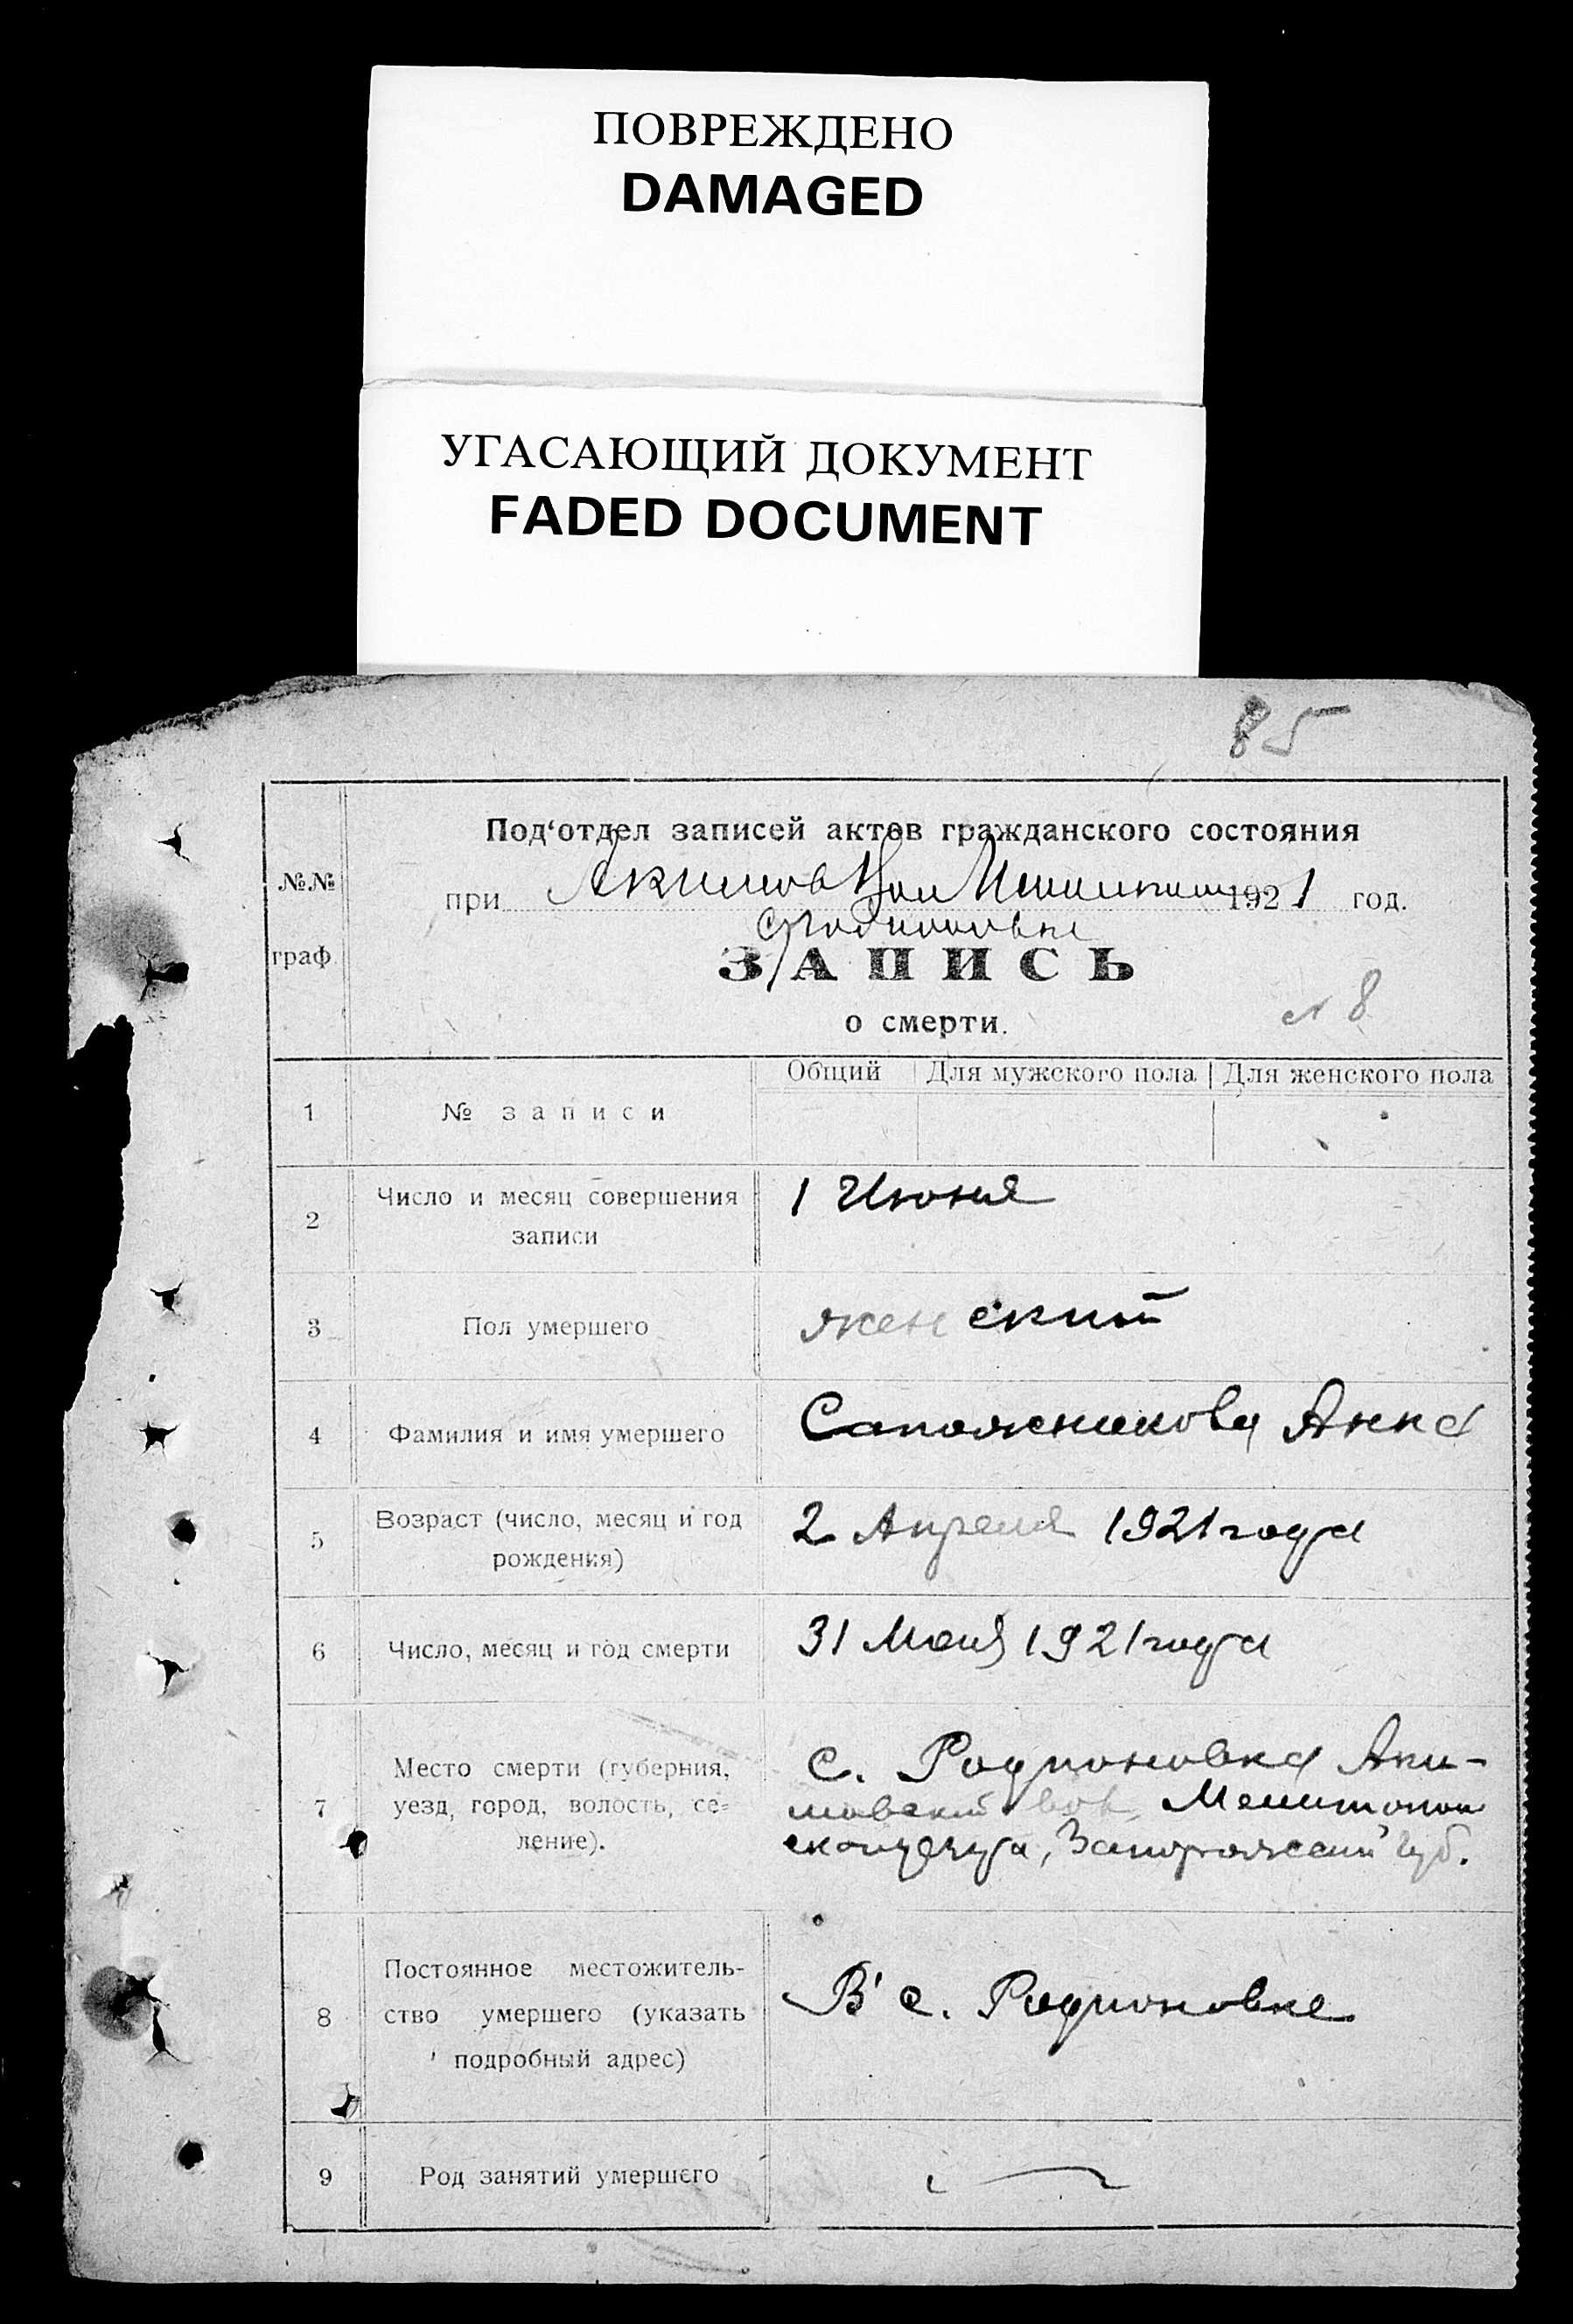 ПОВРЕЖДЕНО
DAMAGED
УГАСАЮЩИЙ ДОКУМЕНТ
FADED DOCUMENT
85
№№
граф.
Под‘отдел записей актов гражданского состояния
при Акимовской 1921 год.
с Родионовке
ЗАПИСЬ
о смерти.
№ 8
Общий Для мужского пола Для женского пола
1 № записи
2 Число и месяц совершения 1 Июня
записи
3 Пол умершего женский
4 Фамилия и имя умершего Сапожникова Анна
5 Возраст (число, месяц и год 2 Апреля 1921 года
рождения)
6 Число, месяц и год смерти 31 Мая 1921 года
7 Место смерти (губерния, с. Родионовка Аки-
уезд, город, волость, се= мовский вол, Мелитополь
ление). ского уезда, Запорожский губ.
8 Постоянное местожитель-
ство умершего (указать В с. Родионовке
подробный адрес)
9 Род занятий умершего